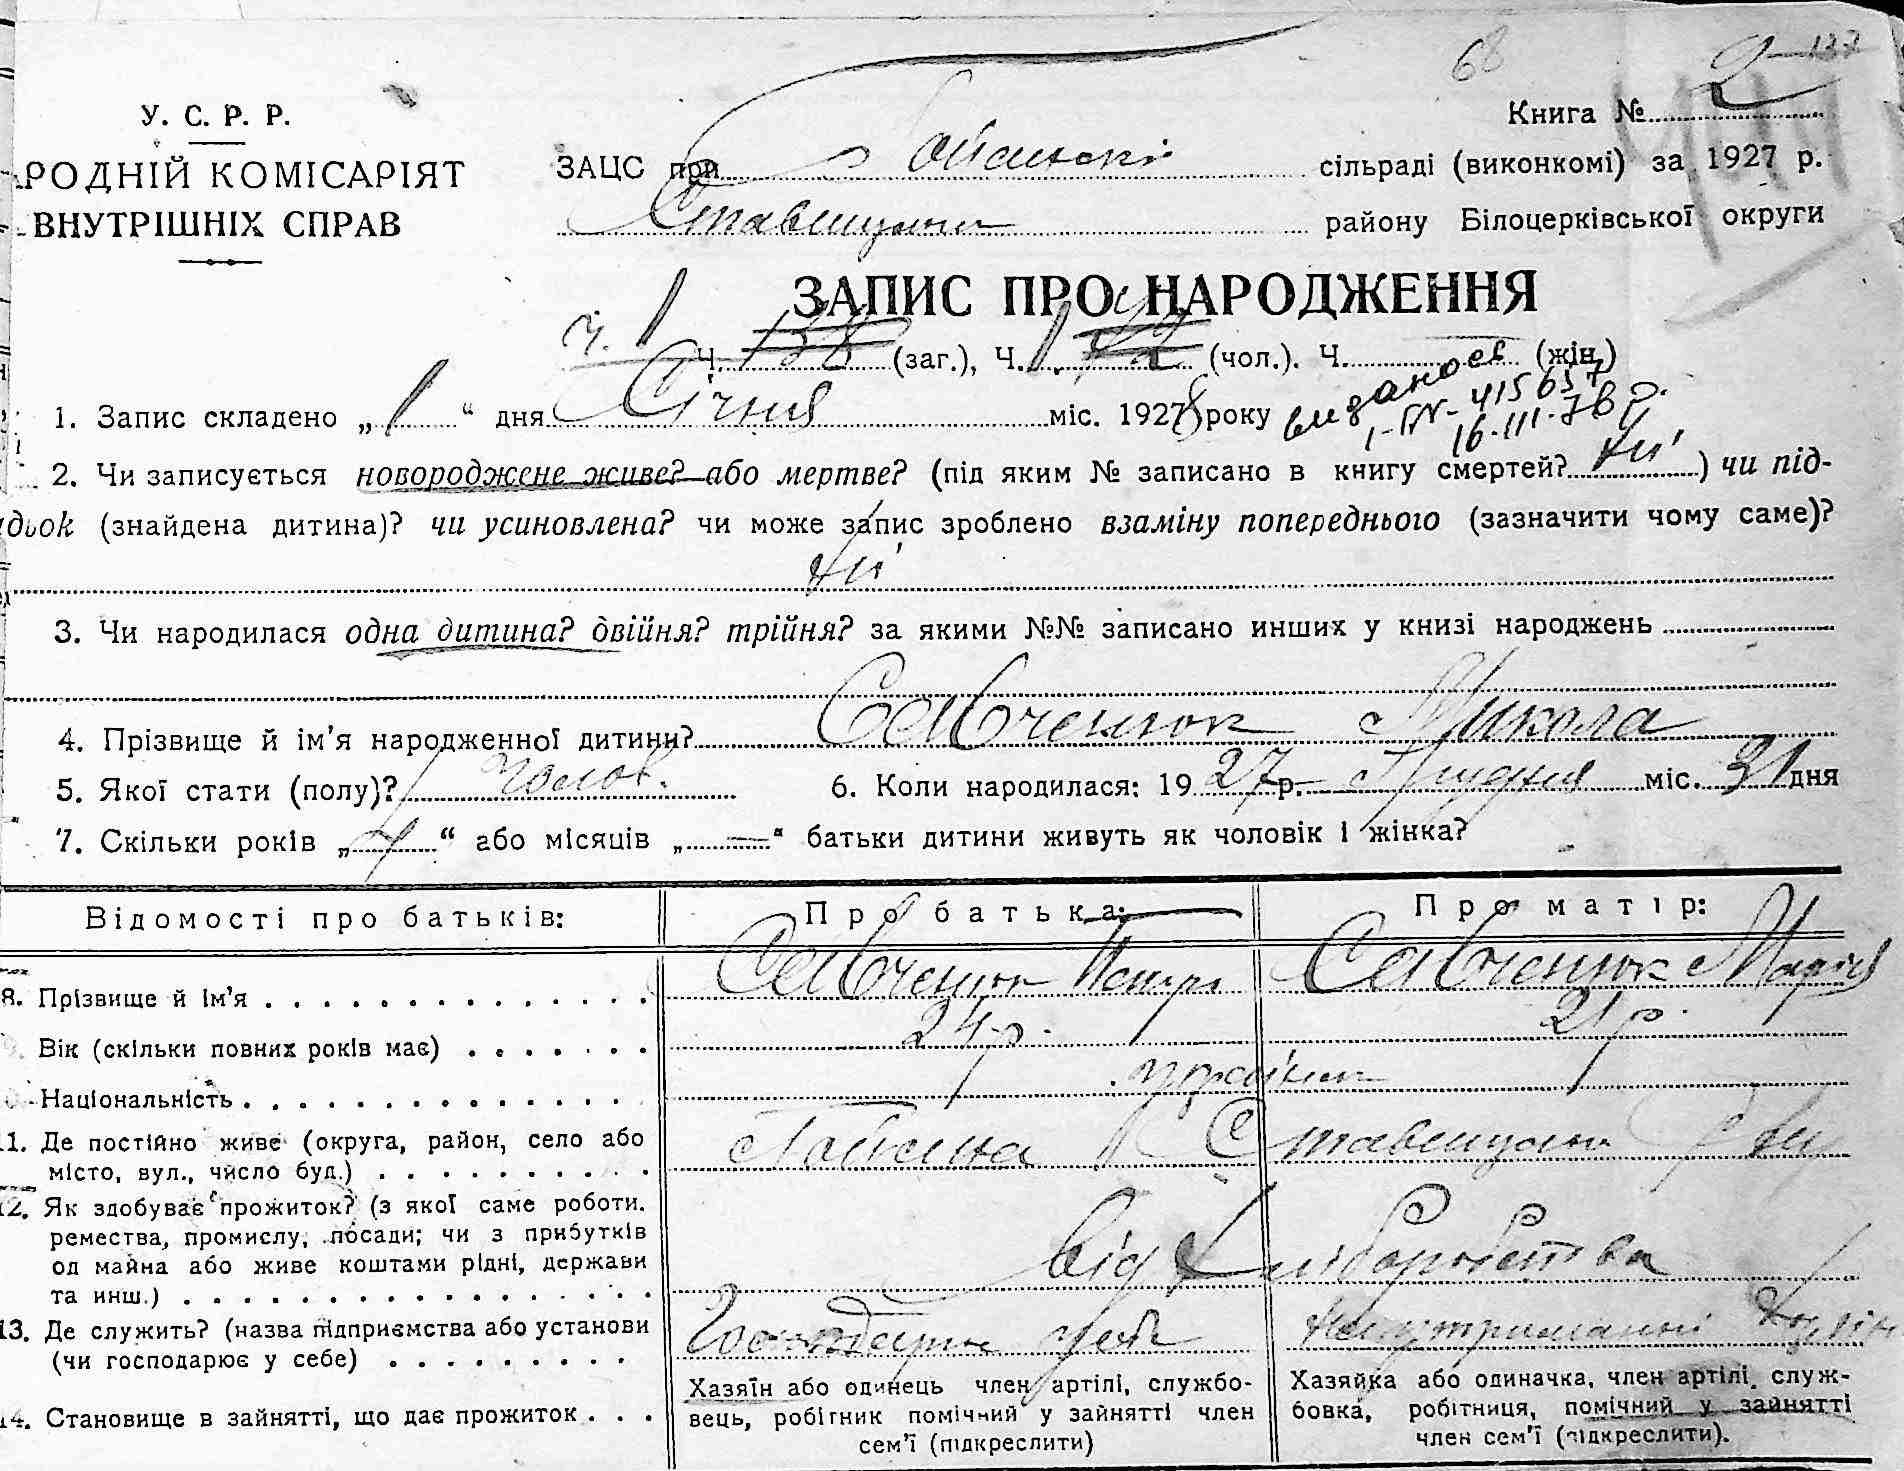 68 2 132
У. С. Р. Р.
РОДНІЙ КОМІСАРІЯТ
ВНУТРІШНІХ СПРАВ
Книга № 2
ЗАЦС при Гойсинскі сільраді (виконкомі) за 1927 р.
Ставищани району Білоцерківської округи
ЗАПИС ПРО НАРОДЖЕННЯ
Ч. 1 Ч. 138 (заг.), Ч. 1 72 (чол.). Ч. (жін.)
1. Запис складено „ 1 “ дня Січня міс. 1928 року
І-БК-415637
16-III-78 р.
2. Чи записується новороджене живе? або мертве? (під яким № записано в книгу смертей? ні) чи під-
дьок (знайдена дитина)? чи усиновлена? чи може запис зроблено взаміну попереднього (зазначити чому саме)?
ні
3. Чи народилася одна дитина? двійня? трійня? за якими №№ записано инших у книзі народжень
4. Прізвище й ім’я народженної дитини? Савченюк Микола
5. Якої стати (полу)? Чолов. 6. Коли народилася: 1927 р. Грудня міс. 31 дня
7. Скільки років „ 4 “ або місяців „ — “ батьки дитини живуть як чоловік і жінка?
Відомості про батьків: Про батька: Про матір:
8. Прізвище й ім’я Савченюк Петро Савченюк Марія
Вік (скільки повних років має) 24 р. 21 р.
Національність україн
11. Де постійно живе (округа, район, село або
місто, вул., число буд.) Гойсина Ставищан р-ну
12. Як здобуває прожиток? (з якої саме роботи.
ремества, промислу, посади; чи з прибутків
од майна або живе коштами рідні, держави
та инш.) Від Хліборобства
13. Де служить? (назва підприємства або установи
(чи господарює у себе) Господарює у себе На утриманні
14. Становище в зайнятті, що дає прожиток
Хазяїн або одинець член артілі, службо-
вець, робітник помічний у зайнятті член
сем’ї (підкреслити)
Хазяйка або одиначка, член артілі, служ-
бовка, робітниця, помічний у зайнятті
член сем’ї (підкреслити).